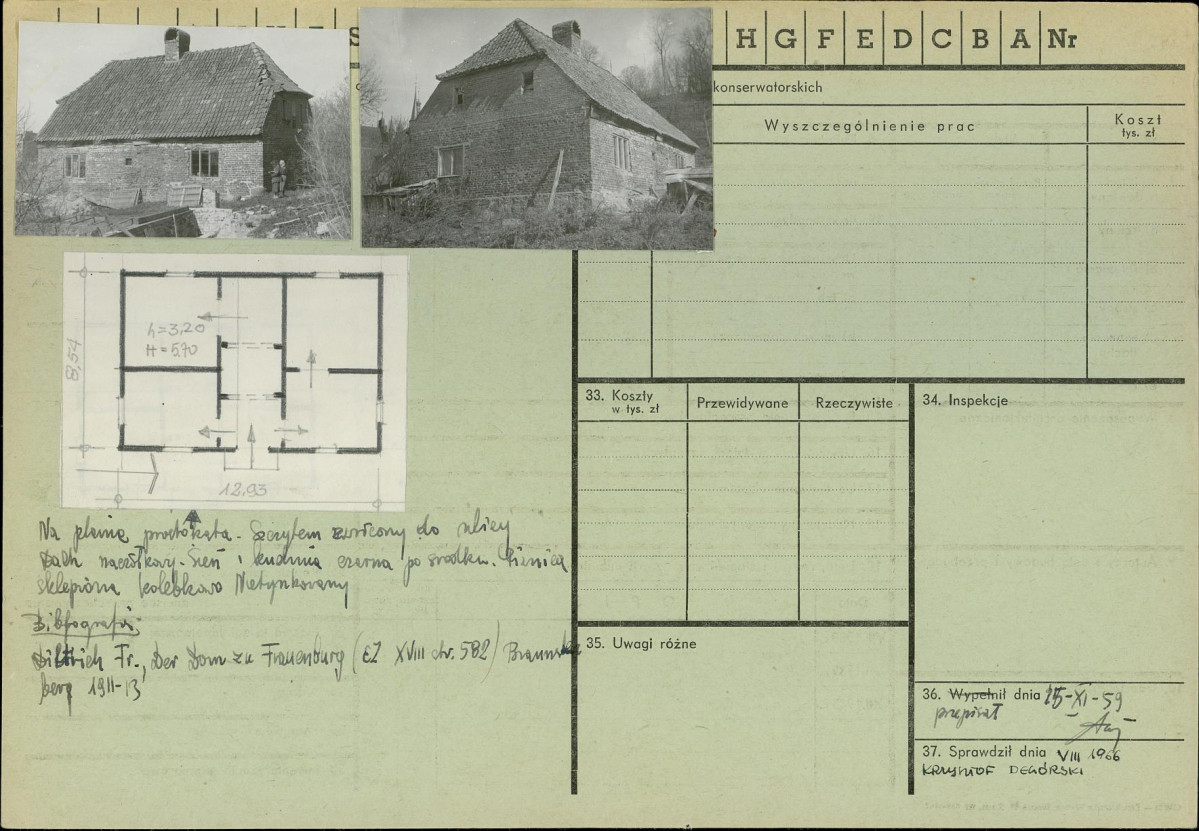 S
H G F E D C B A Nr
konserwatorskich
Wyszczególnienie prac
Koszt
tys. zł
h=3,20
H=5,70
8,54
12,93
Na planie prostokąta. Szczytem zwrócony do ulicy
Dach naczółkowy. Sień i kuchnia czarna po środku. Piwnica
sklepiona kolebkowo Nietynkowany
Bibliografia:
Dittrich Fr., Der Dom zu Frauenburg (EZ XVIII str. 582) Brauns
berg 1911-13
33. Koszty
w tys. zł
Przewidywane
Rzeczywiste
34. Inspekcje
35. Uwagi różne
36. Wypełnił dnia 25-XI-59
przepisał
37. Sprawdził dnia VIII 1966
KRZYSZTOF DEGÓRSKI